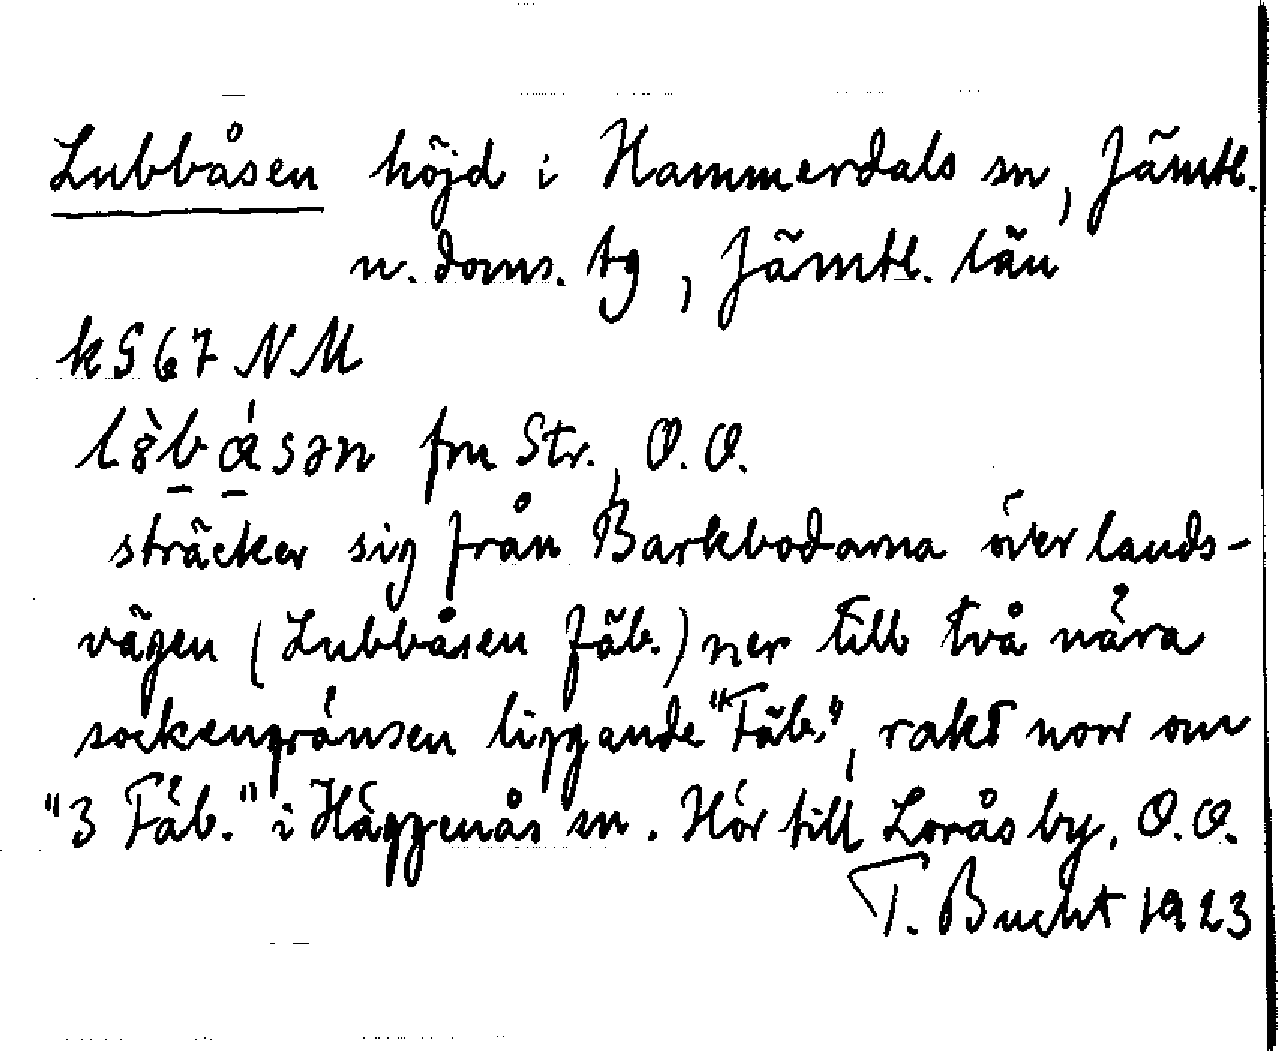 Lubbåsen höjd i Hammerdals sn, Jämtl.
n. doms. tg, Jämtl. län
k 567 NM
fm Str., O.O.
sträcker sig från Barkbodarna över lands-
vägen (Lubbåsen fäb.) ner till två nära
sockengränsen liggande "Fäb.", rakt norr om
"3 Fäb." i Häggenås sn. Hör till Lorås by, O.O.
T. Bucht 1923